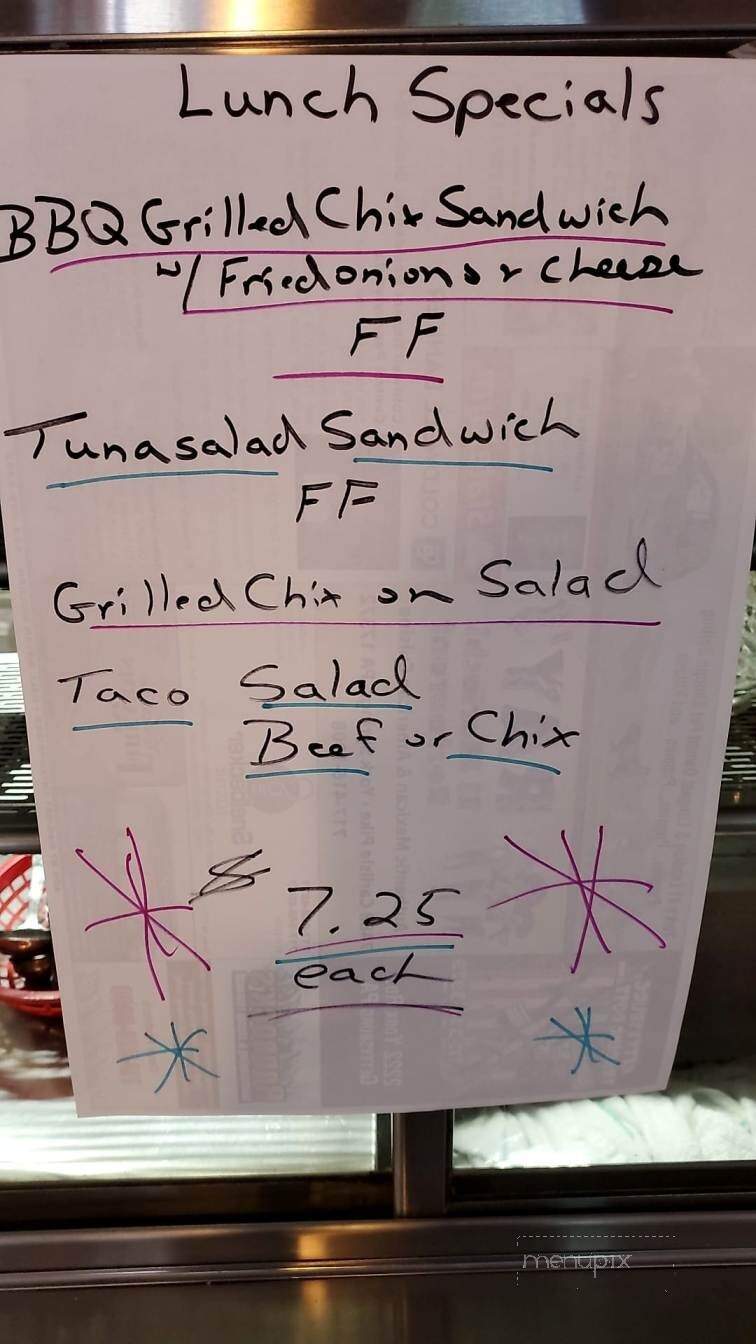 Lunch Specials
BBQ Grilled Chix Sandwich
w/ Fried onions + cheese
FF
Tunasalad Sandwich
FF
Grilled Chix on Salad
Taco Salad
Beef or Chix
$ 7.25
each
menupix